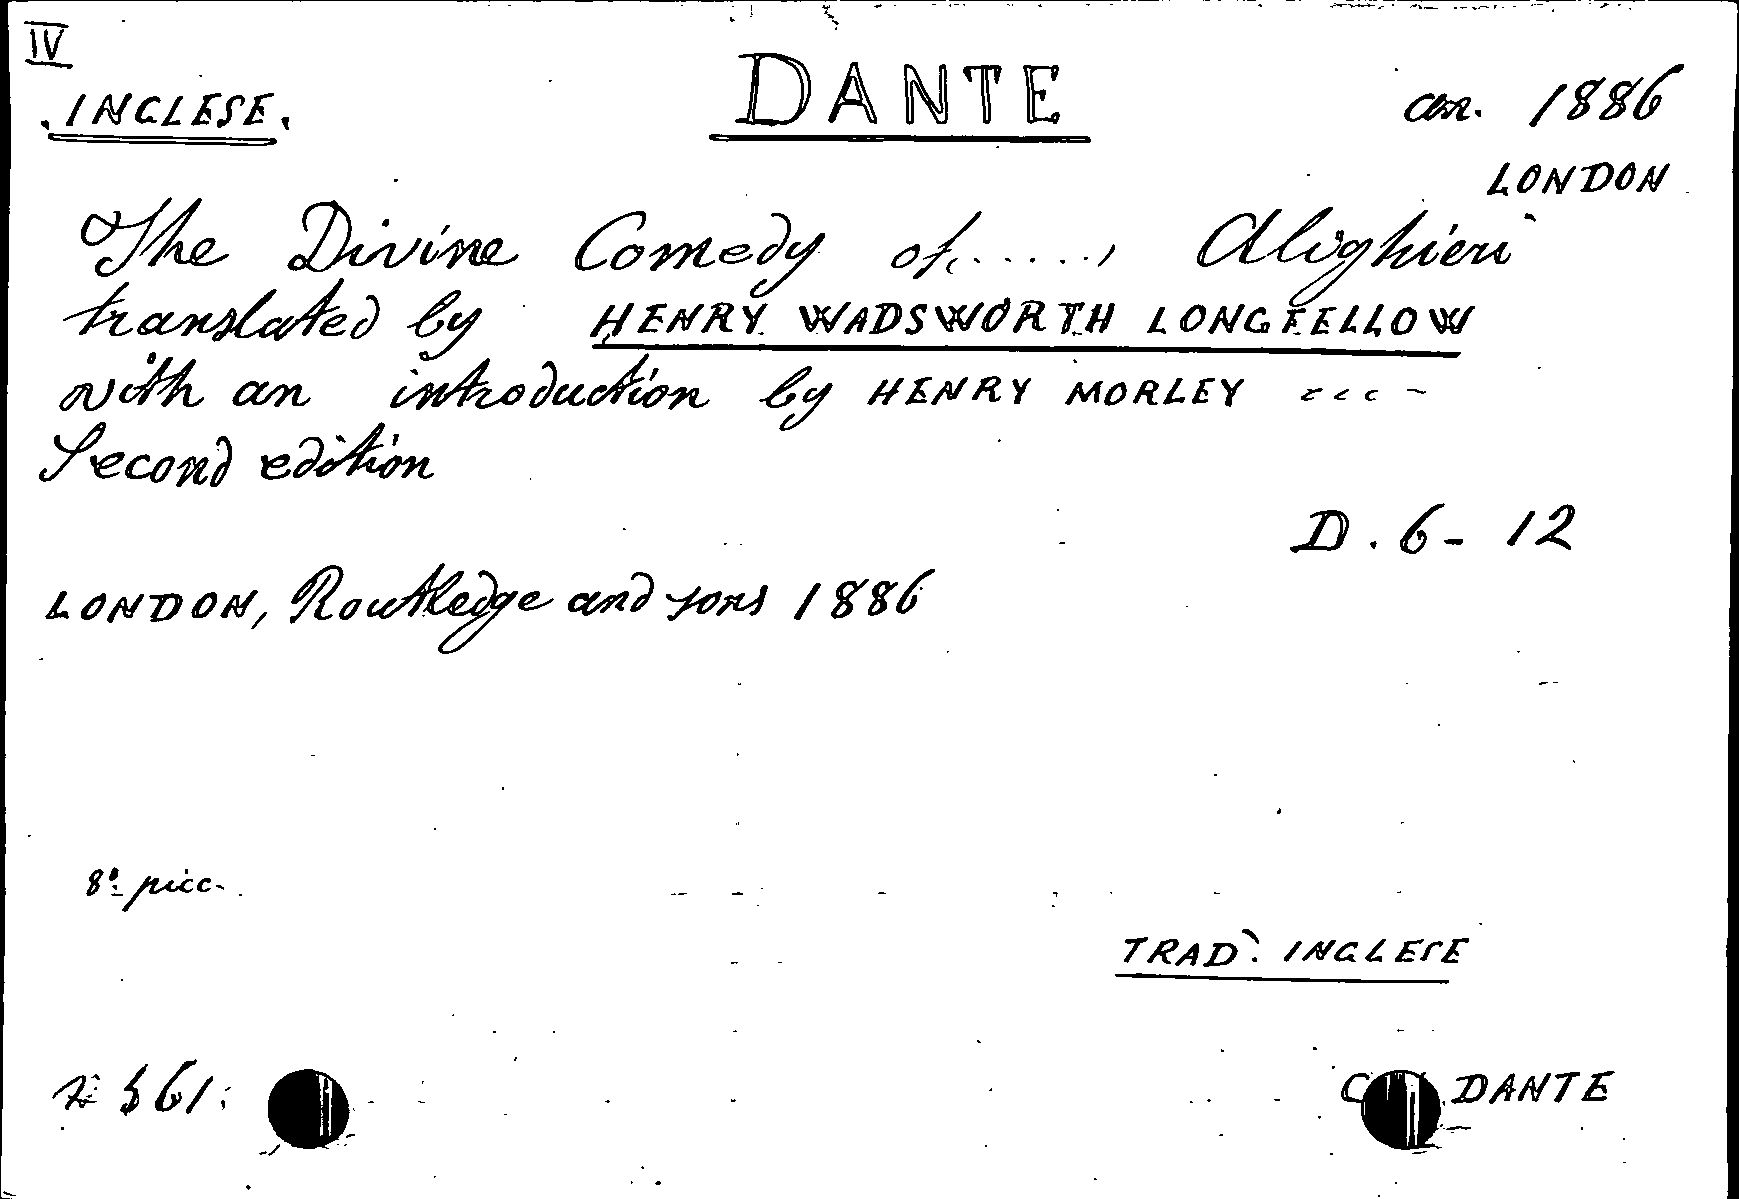 IV
INGLESE.
DANTE
an. 1886
LONDON
The Divine Comedy of ......, Alighieri
translated by HENRY WADSWORTH LONGFELLOW
with an introduction by HENRY MORLEY ----
Second edition
D. 6 - 12
LONDON, Routledge and sons 1886
8º picc.
TRAD. INGLESE
561
DANTE